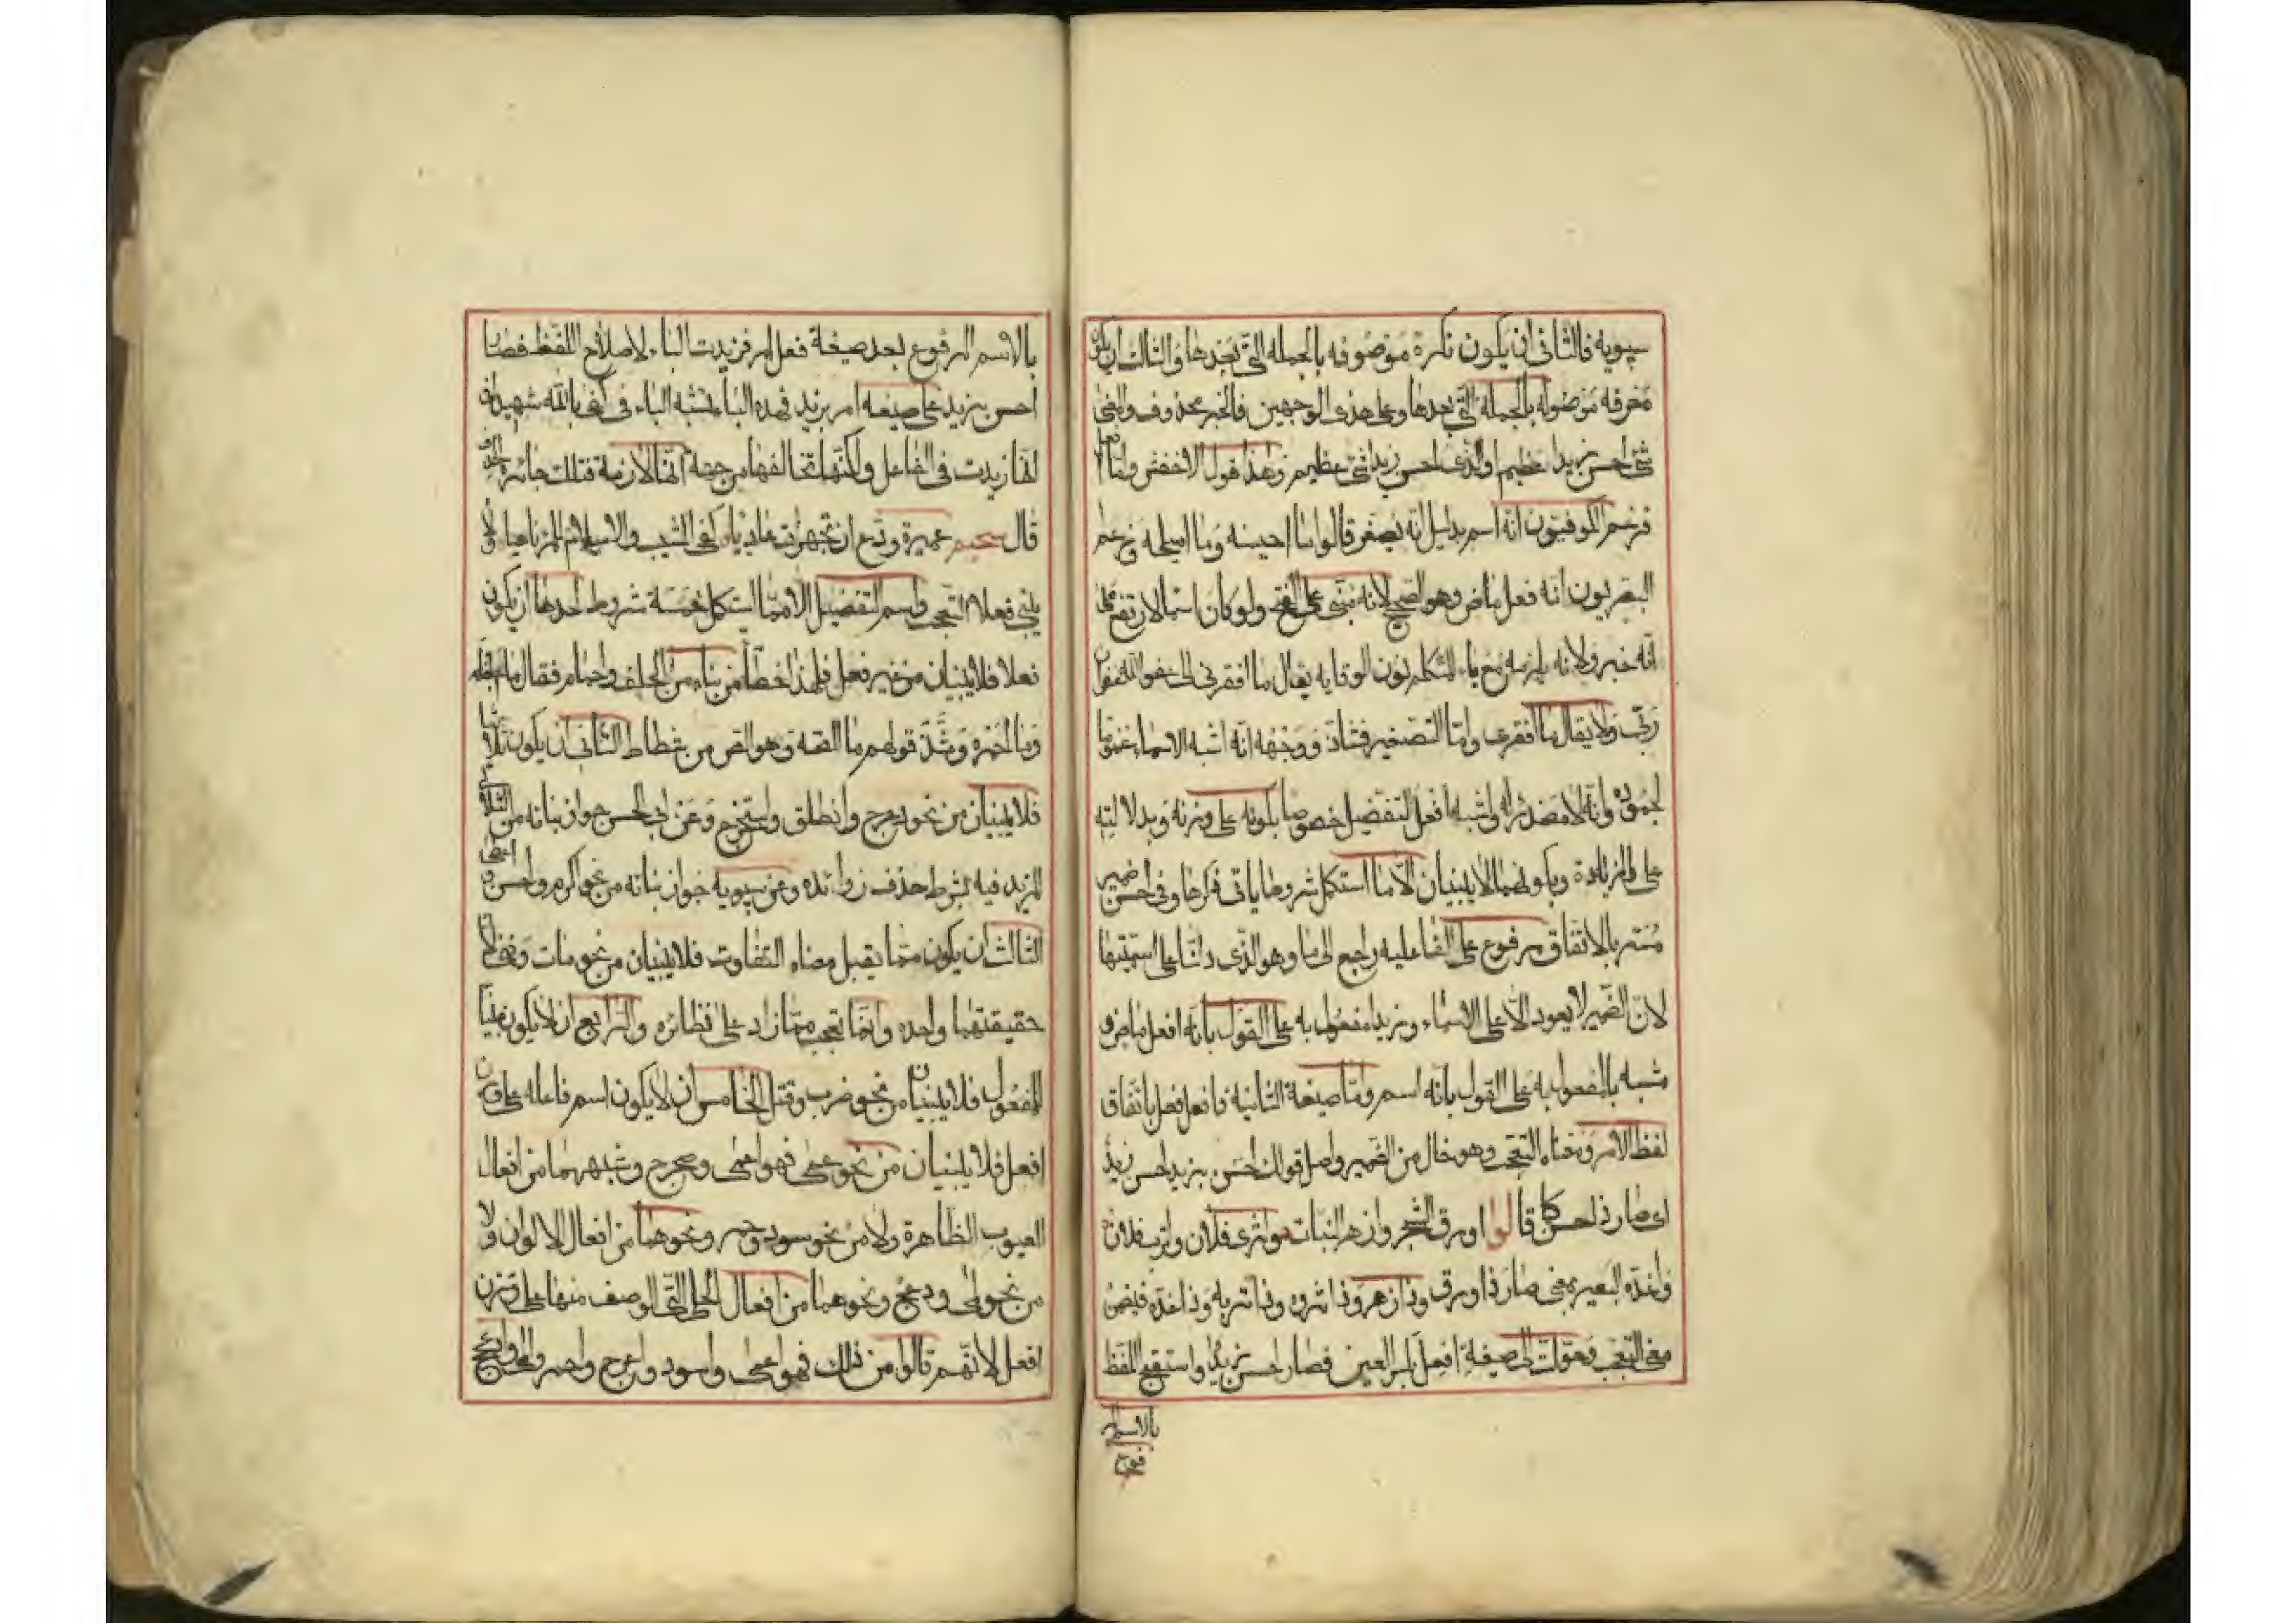 سيبويه فالثانى ان يكون نكرة موصوفه بالجمله التى بعدها والثالث ان يكون
معرفه موصوله بالجملة التى بعدها وعلى هذى الوجهين فالخبر محذوف والمعنى
شئ احسن زيدا عظيم او الذى احسن زيدا شئ عظيم وهذا قول الاخفش واما
فزعم الكوفيون انه اسم بدليل انه يصغر قالوا ما احيسنه وما اميلحه وزعم
البصريون انه فعل ماض وهو الصحيح لانه مبنى على الفتح ولو كان اسما لارتفع على
انه خبر ولانه يلزمه مع ياء المتكلم نون الوقايه يقال ما افقرنى الى عفو الله
ربى ولا يقال ما افقرى واما التصغير فشاذ ووجهه انه اشبه الاسماء عموما
لجموده وانه لا مصدر له واشبه افعل التفضيل خصوصا بكونه على وزنه وبدلالته
على الزيادة وبكونهما لا يبنيان الا ما استكمل شروطا ياتى ذكرها وفى احسن ضمير
مستتر بالاتفاق مرفوع على الفاعليه راجع الى ما وهو الذى دلنا على اسميتها
لان الضمير لا يعود الا على الاسماء وزيدا مفعول به على القول بانه افعل ماض و
مشبه بالمفعول به على القول بانه اسم واما صيغة الثانية فافعل فعل باتفاق
لفظ الامر ومعناه التعجب وهو خال من الضمير واصل قولك احسن بزيد احسن زيد
اى صار ذا حسن كما قالوا اورق الشجر وازهر النبات واثرى فلان واترب فلان
واغده البعير بمعنى صار ذا ورق وذا زهر وذا ثروه وذا متربه وذا غده فضمن
معنى التعجب وحولت الى صيغة افعل بكسر العين فصار احسن زيد واستقبح اللفظ
بالاسم المر
فوع
بالاسم المرفوع بعد صيغة فعل امر فزيدت الباء لاصلاح اللفظ فصار
احسن بزيد على صيغه امر بزيد فهذه الباء تشبه الباء فى كفى بالله شهيدا فى
انها زيدت فى الفاعل ولكنها تخالفها من جهة انها لازمة فتلك جائزة الحذف
قال سحيم عميرة ودع ان تجهزت غاديا كفى الشيب والاسلام للمرء ناهيا ولا
يبنى فعلا التعجب واسم التفضيل الا مما استكمل خمسة شروط احدها ان يكون
فعلا فلا يبنيان من غير فعل فلهذا خطأ من بناه من الجلف وحمار فقال ما اجلفه
وما احمره وشذ قولهم ما الصه وهو الص من شظاظ الثانى ان يكون ثلاثيا
فلا يبنيان من نحو دحرج وانطلق واستخرج وعن ابى الحسن جواز بنائه من الثلاثى
المزيد فيه بشرط حذف زوائده وعن سيبويه جواز بنائه من نحو اكرم واحسن واعطى
الثالث ان يكون مما يقبل معناه التفاوت فلا يبنيان من نحو مات وفنى لان
حقيقتهما واحده وانما تتعجب مما زاد على نظائره والرابع ان لا يكون مبنيا
للمفعول فلا يبنيان من نحو ضرب وقتل الخامس ان لا يكون اسم فاعله على وزن
افعل فلا يبنيان من نحو عمى فهو اعمى وعرج وشبههما من افعال
العيوب الظاهرة ولا من نحو سود وحمر ونحوهما من افعال الالوان ولا
من نحو لمى ودعج ونحوهما من افعال الحلى التى الوصف منها على وزن
افعل لانهم قالوا من ذلك فهو اعمى واسود واعرج واحمر والمى وادعج